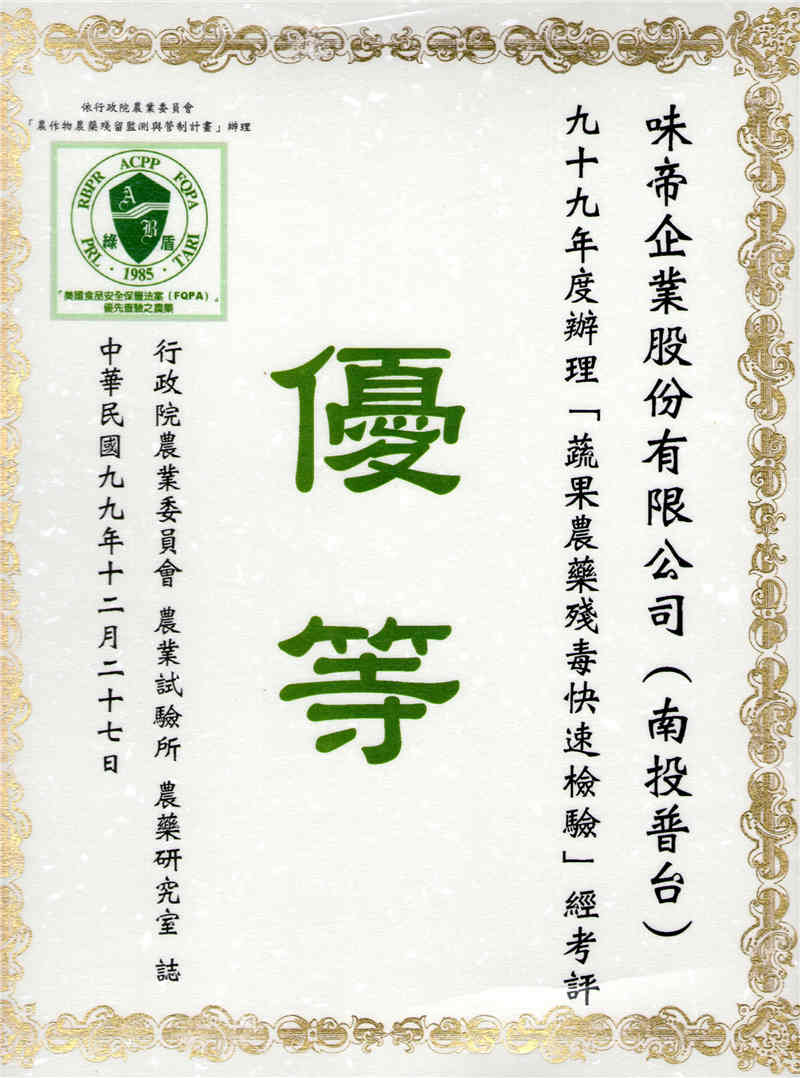 味帝企業股份有限公司（南投普台）
九十九年度辦理「蔬果農藥殘毒快速檢驗」經考評
優等
依行政院農業委員會
「農作物農藥殘留監測與管制計畫」辦理
RBPR ACPP FQPA
AB
綠盾
PRL · 1985 · TARI
『美國食品安全保護法案（FQPA）』
優先查驗之農藥
行政院農業委員會 農業試驗所 農藥研究室 誌
中華民國九九年十二月二十七日